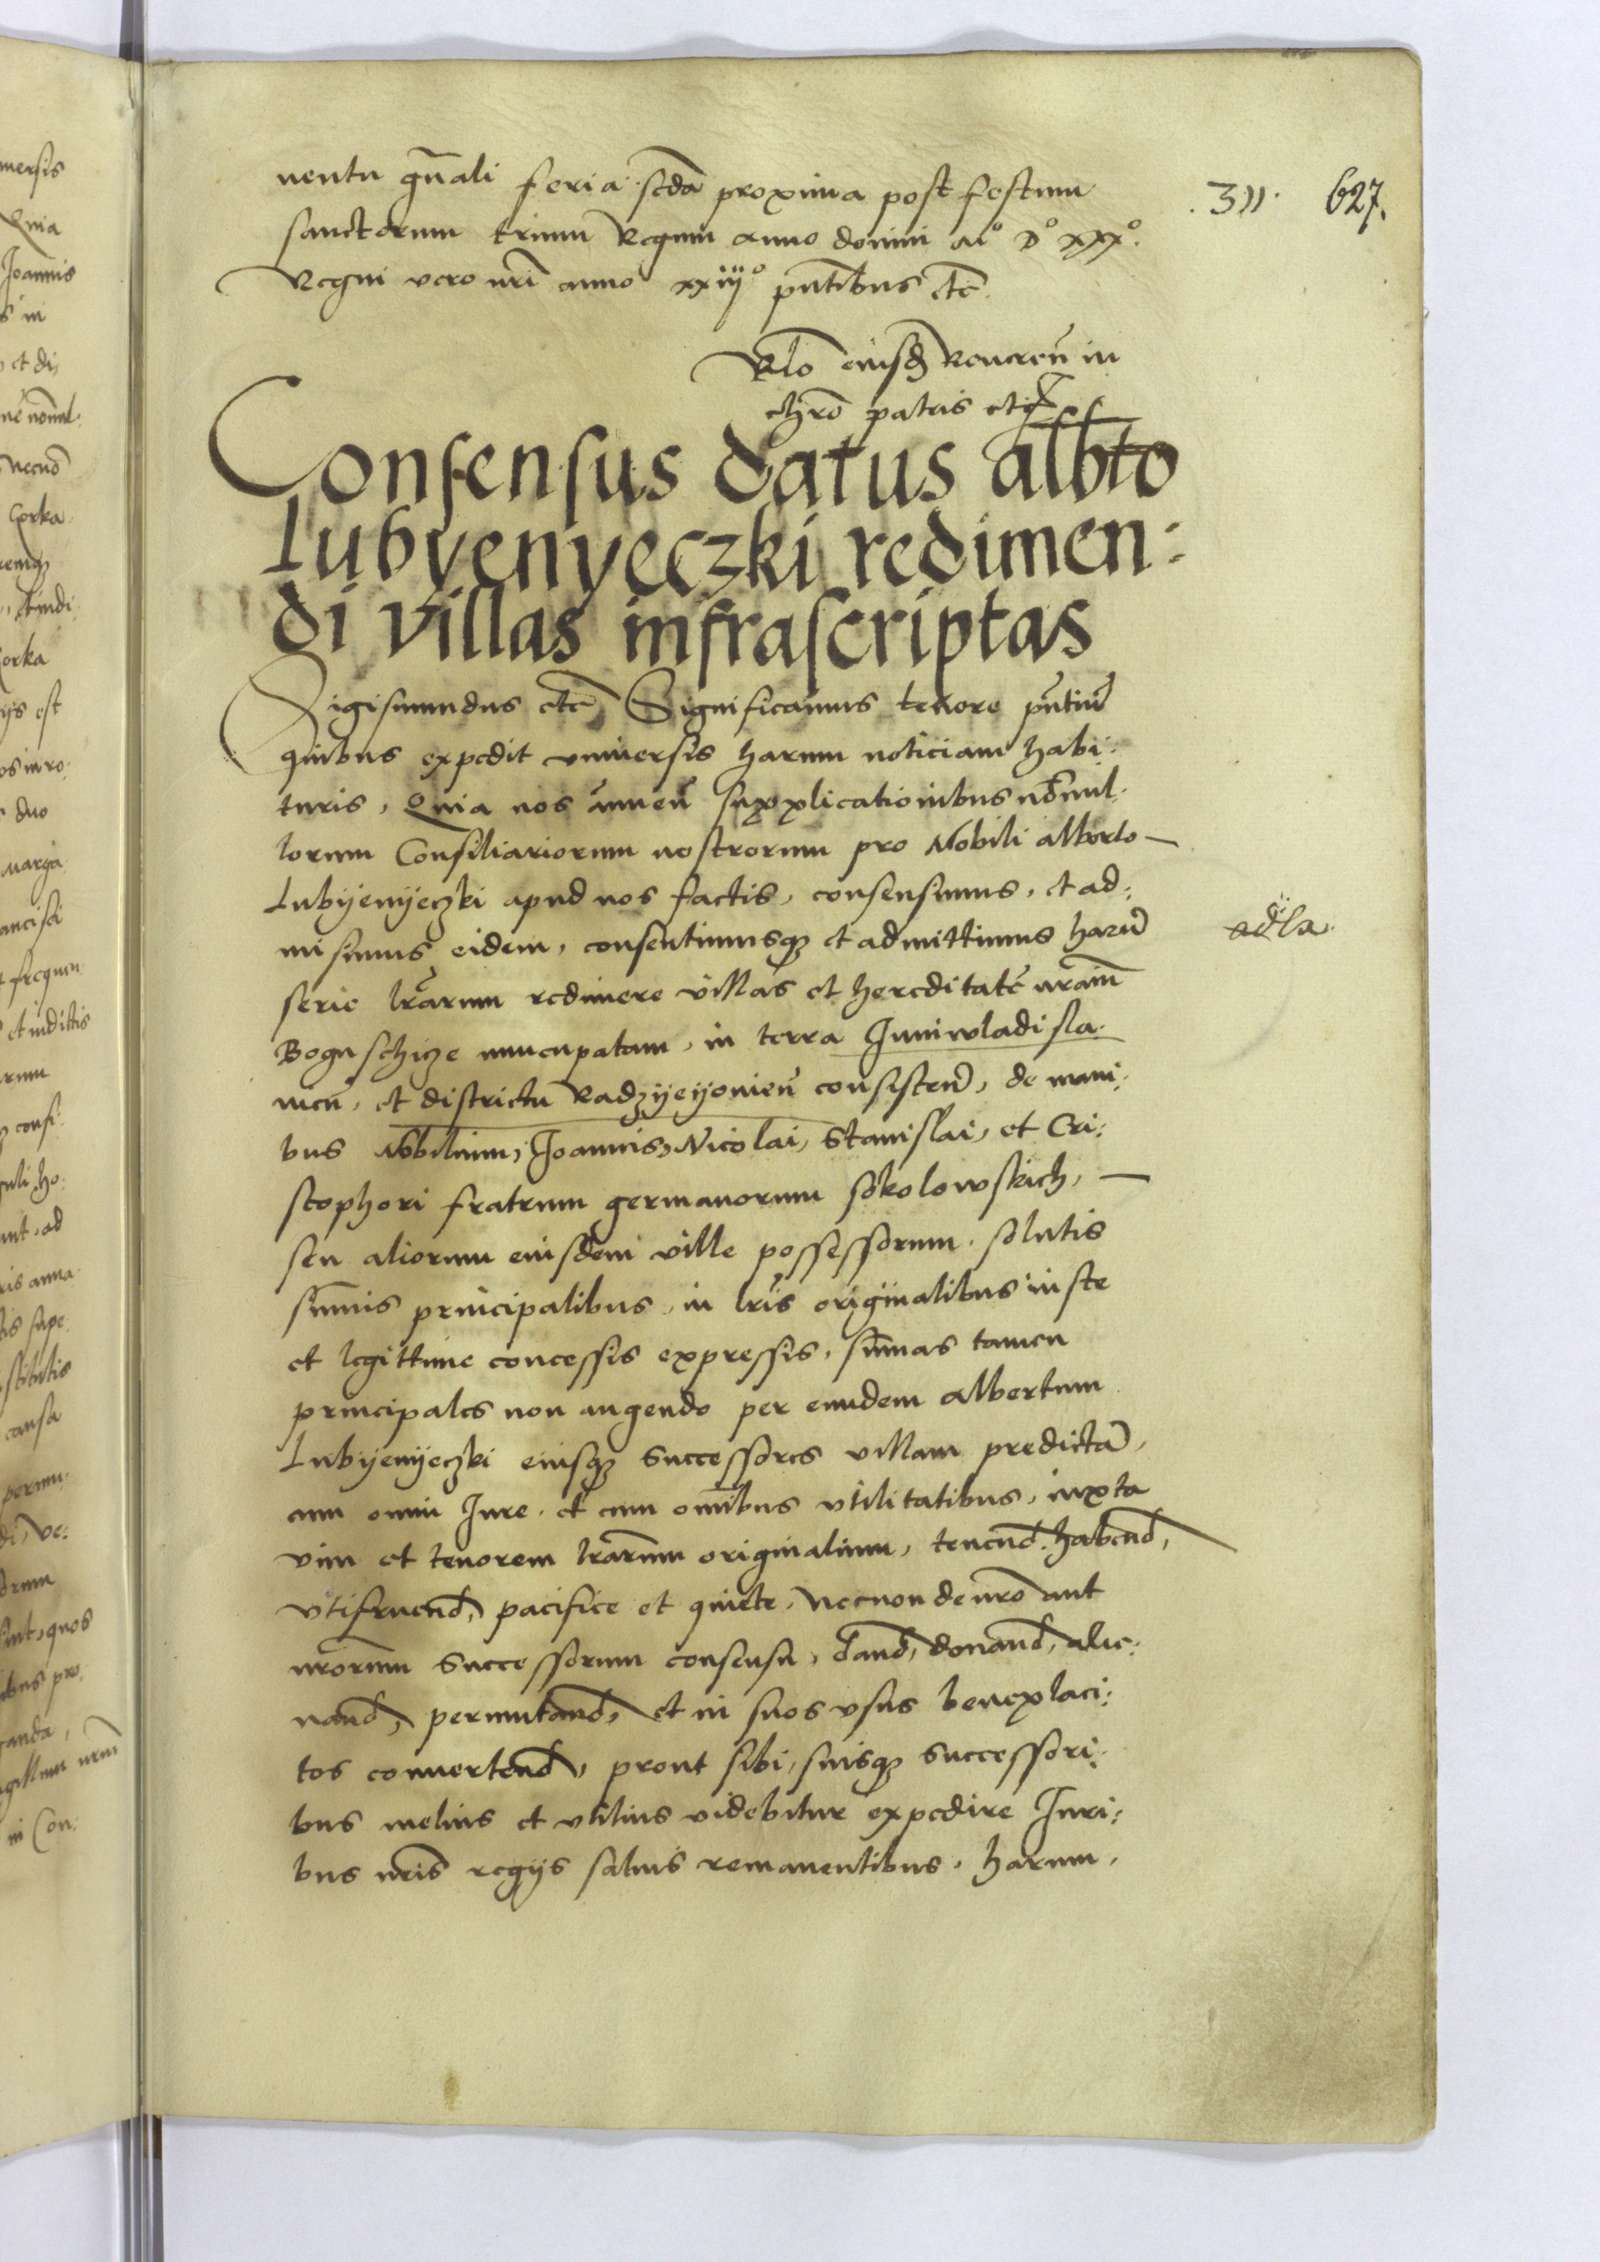 .311. 627.
nentu gnali feria scda proxima post festum
sanctorum trium Regum anno domini Mº Dº xxxº.
Regni vero nri anno xxiijº pntibus etc
Rlo eiusd Reueren in
chro patris etc
Consensus datus albto
Lubyenyeczki redimen:
di villas infrascriptas
Sigismundus etc Significamus tenore pntiu
quibus expedit vniuersis harum noticiam habi:
turis, Quia nos annuen supplicationibus nonnul:
lorum Consiliariorum nostrorum pro Nobili alberto
Lubyenyeczki apud nos factis, consensimus, et ad:
misimus eidem, consentimusq et admittimus haru
serie lrarum redimere villas et hereditate nram
Boguschicze nuncupatam, in terra Juniwladisla:
uien, et districtu Radzyeyouien consisten, de mani:
bus Nobilium, Joannis, Nicolai, Stanislai, et Cri:
stophori fratrum germanorum sokolowskich,
seu aliorum eiusdem ville possessorum, solutis
summis principalibus, in lris originalibus iuste
et legittime concessis expressis, summas tamen
principales non augendo per eundem albertum
Lubyenyeczki eiusq successores villam predicta,
cum omni Jure, et cum omnibus vtilitatibus, iuxta
vim et tenorem lrarum originalium, tenend, habend,
vtifruend, pacifice et quiete, Necnon de nro aut
nrorum successorum consensu, dand, donand, alie:
nand, permutand, et in suos vsus beneplaci:
tos conuertend, prout sibi, suisq successori:
bus melius et vtilius videbitur expedire Juri:
bus nris regijs saluis remanentibus, harum,